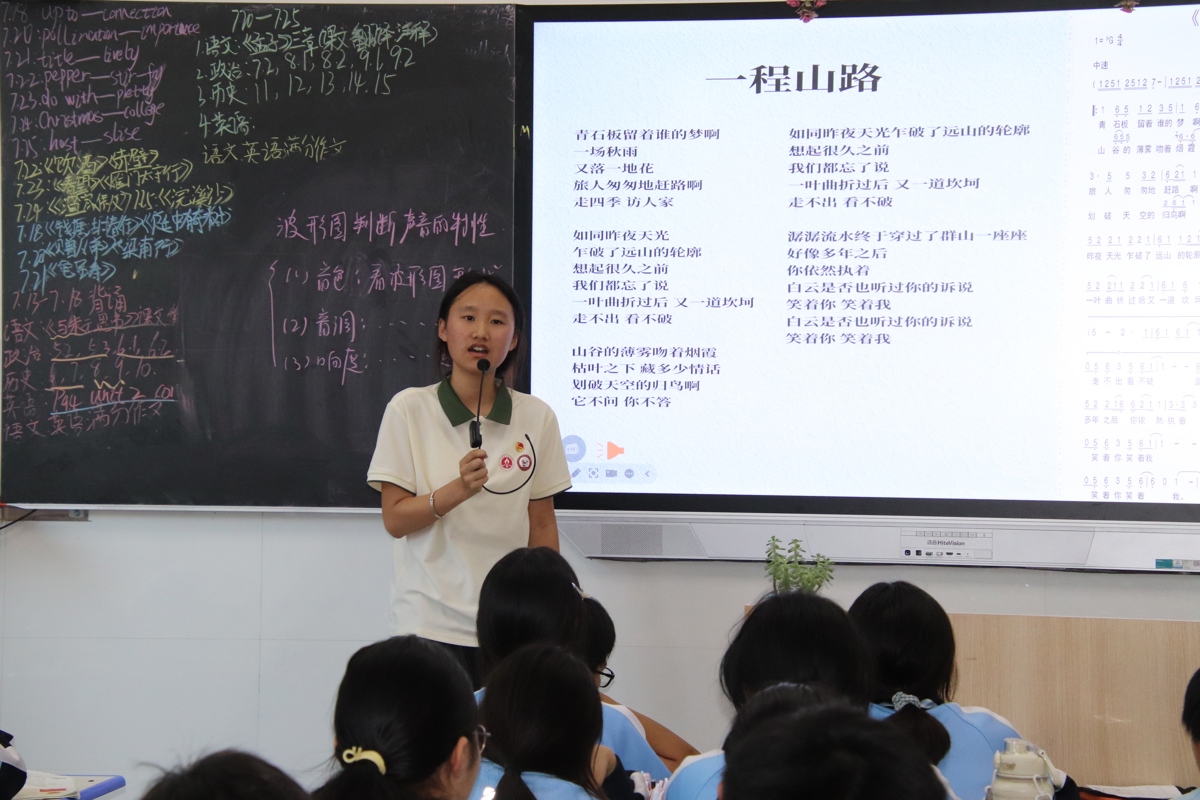 7.18 up to—connection
7.20: pollination—importance
7.21. title—lively
7.22. pepper—stir-fry
7.23. do with—plenty
7.24. Christmas—college
7.25. host—
7.20—7.25
1.语文:《孟子》三章(课文 翻译 注释)
2.政治:7.2, 8.1, 8.2, 9.1, 9.2
3.历史:11, 12, 13, 14, 15
4.英语:
语文英语满分作文
7.13-7.18 背诵
政治 5.2, 5.3, 6.1, 6.2
历史 7. 8. 9. 10.
英语 P44 Unit 2
语文 英语满分作文
波形图判断声音的特性
(1)音色:看波形图
(2)音调:……
(3)响度:……
一程山路
青石板留着谁的梦啊
一场秋雨
又落一地花
旅人匆匆地赶路啊
走四季 访人家
如同昨夜天光
乍破了远山的轮廓
想起很久之前
我们都忘了说
一叶曲折过后 又一道坎坷
走不出 看不破
山谷的薄雾吻着烟霞
枯叶之下 藏多少情话
划破天空的归鸟啊
它不问 你不答
如同昨夜天光乍破了远山的轮廓
想起很久之前
我们都忘了说
一叶曲折过后 又一道坎坷
走不出 看不破
潺潺流水终于穿过了群山一座座
好像多年之后
你依然执着
白云是否也听过你的诉说
笑着你 笑着我
白云是否也听过你的诉说
笑着你 笑着我
中速
青 石板 留着 谁的 梦 啊
山 谷的 薄雾 吻着 烟 霞
旅 人 匆 匆地 赶路 啊
划 破 天 空的 归鸟啊
昨夜 天光 乍破了 远山 的轮廓
一叶 曲 折 过 后 又 一 道 坎
走 不 出 看 不 破
多年 之 后 你 依 然 执 着
笑 着 你 笑 着 我
笑 着 你 笑 着 我。
HiteVision